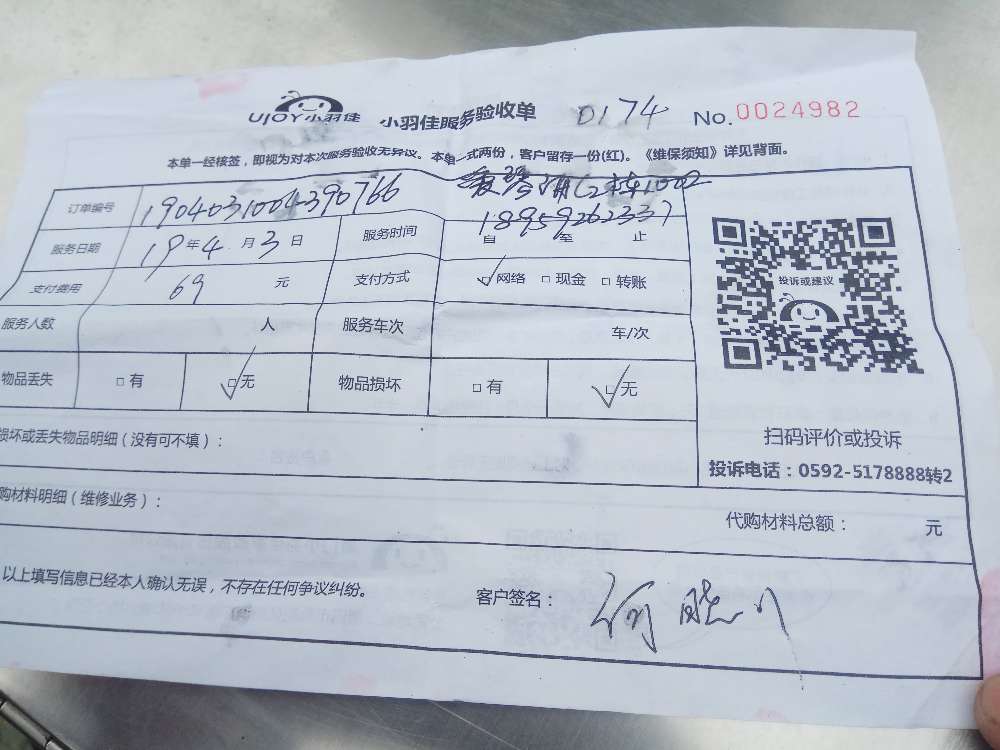 UJOY小羽佳 小羽佳服务验收单 0174 No.0024982
本单一经核签，即视为对本次服务验收无异议。本单一式两份，客户留存一份(红)。《维保须知》详见背面。
C2栋1002
订单编号 1904031004390766
18959262337
服务日期 19年4月3日 服务时间 自 至 止
支付费用 69 元 支付方式 ☑网络 □现金 □转账
投诉或建议
服务人数 人 服务车次 车/次
物品丢失 □有 ☑无 物品损坏 □有 ☑无
损坏或丢失物品明细（没有可不填）：
扫码评价或投诉
投诉电话：0592-5178888转2
购材料明细（维修业务）：
代购材料总额： 元
以上填写信息已经本人确认无误，不存在任何争议纠纷。
客户签名： 何晓川